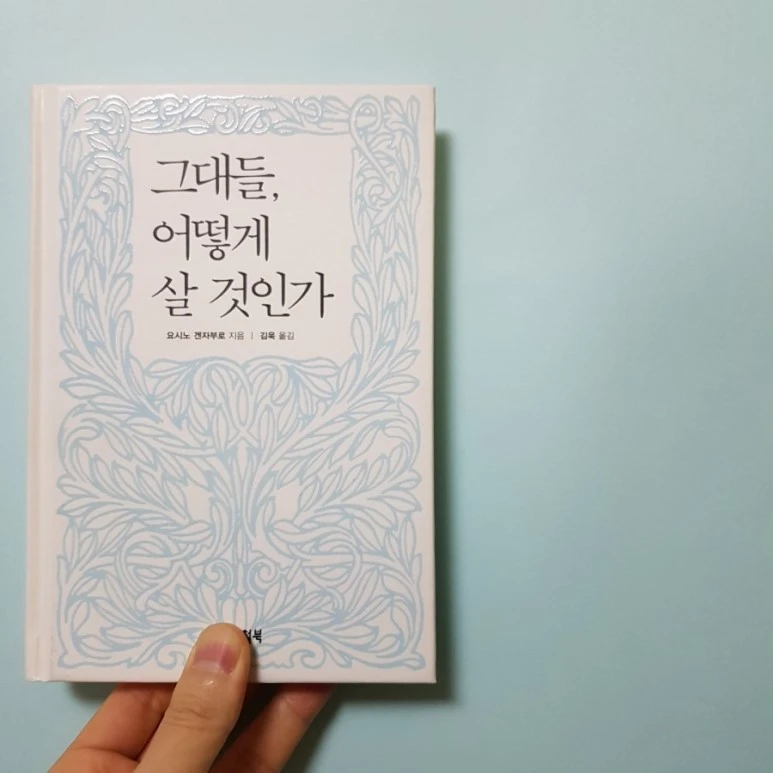 그대들,
어떻게
살 것인가
요시노 겐자부로 지음 | 김욱 옮김